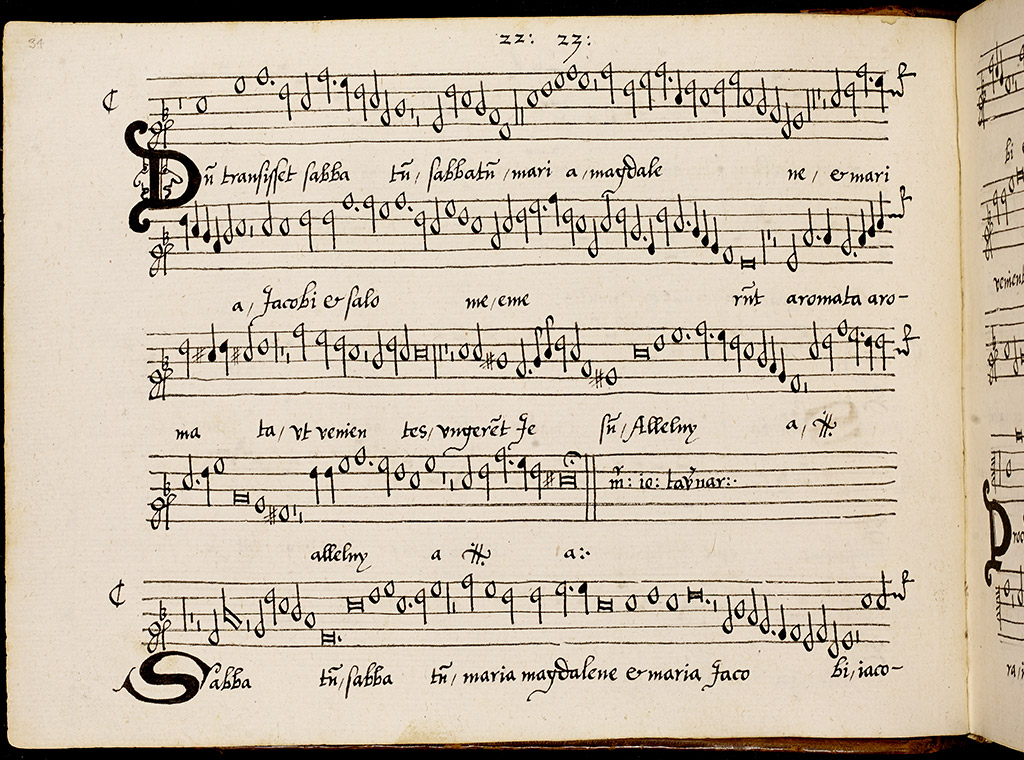 34
22: 23:
Dũ transisset sabba tũ, sabbatũ, mari a, magdale ne, & mari
a, Jacobi & salo me, eme rũt aromata aro-
ma ta, vt venien tes, vngerẽt Je sũ, Alleluy a, ij.
m̃: io: tav̓nar:.
alleluy a ij. a:.
Sabba tũ, sabba tũ, maria magdalene & maria Jaco bi, iaco-